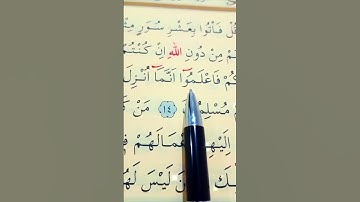 قُلْ فَأْتُوا بِعَشْرِ سُوَرٍ
مِنْ دُونِ اللّٰهِ اِنْ كُنْتُمْ
فَاعْلَمُٓوا اَنَّمَٓا اُنْزِلَ
مُسْلِمُونَ ﴿١٤﴾ مَنْ
اِلَيْهِمْ اَعْمَالَهُمْ
لَيْسَ لَهُمْ